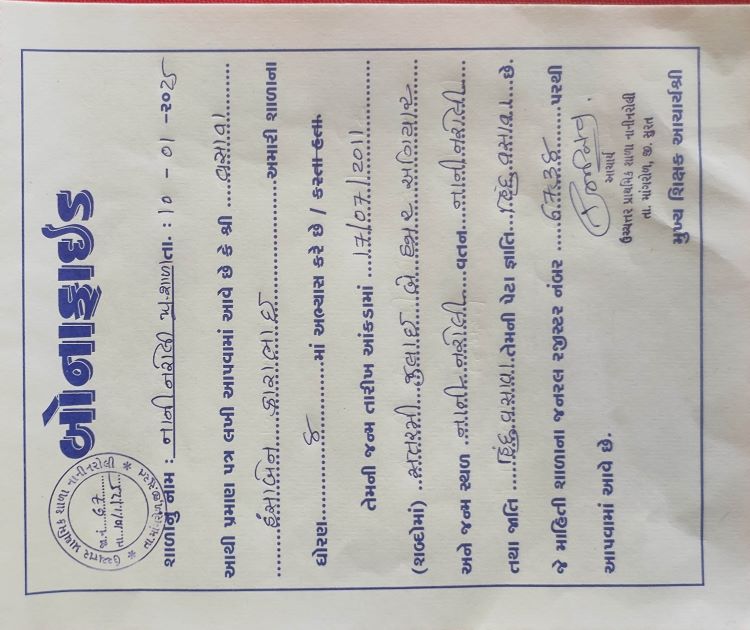 બોનાફાઈડ
શાળાનું નામ : નાની નરોલી પ્રા.શાળા તા. : 10 - 01 -૨૦૨5
આથી પ્રમાણ પત્ર લખી આપવામાં આવે છે કે શ્રી ....વસાવા.........
...હંસાબેન....કારાભાઈ...................અમારી શાળાના
ધોરણ...........૪...............માં અભ્યાસ કરે છે / કરતા હતા.
તેમની જન્મ તારીખ આંકડામાં .....17/07/2011.........
(શબ્દોમાં) ..સત્તરમી..જુલાઈ..બે હજાર અગિયાર
અને જન્મ સ્થળ ..નાની નરોલી.... વતન...નાની નરોલી
તથા જાતિ ....હિંદુ વસાવા..તેમની પેટા જ્ઞાતિ...હિંદુ વસાવા.. છે.
જે માહિતી શાળાના જનરલ રજીસ્ટર નંબર ....૬૭૩૪.......પરથી
આપવામાં આવે છે.
આચાર્ય
ઉચ્ચત્તર પ્રાથમિક શાળા નાનીનરોલી
તા. માંગરોળ, જી. સુરત
મુખ્ય શિક્ષક આચાર્યશ્રી
ઉચ્ચત્તર પ્રાથમિક શાળા નાનીનરોલી
જા.નં. ૬૭
તા. 10/1/25
તા.માંગરોળ,જી.સુરત